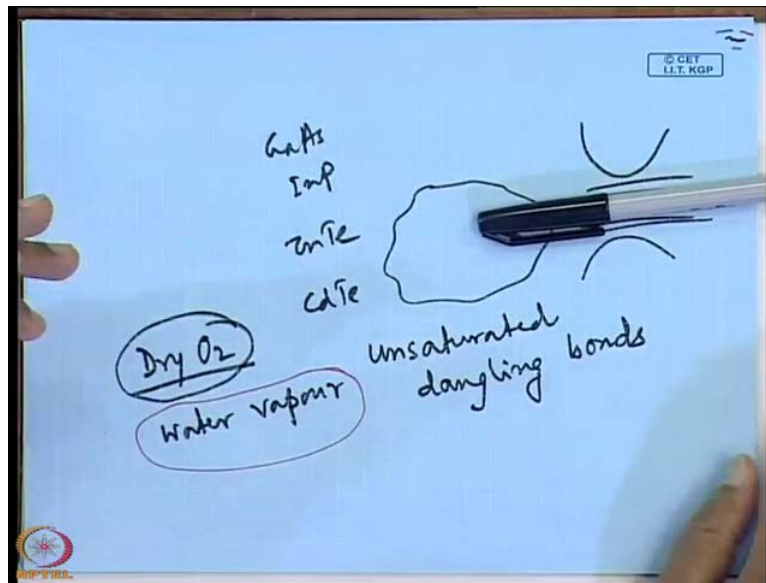 © CET
I.I.T. KGP
GaAs
InP
ZnTe
CdTe
Dry O2
water vapour
unsaturated
dangling bonds
NPTEL